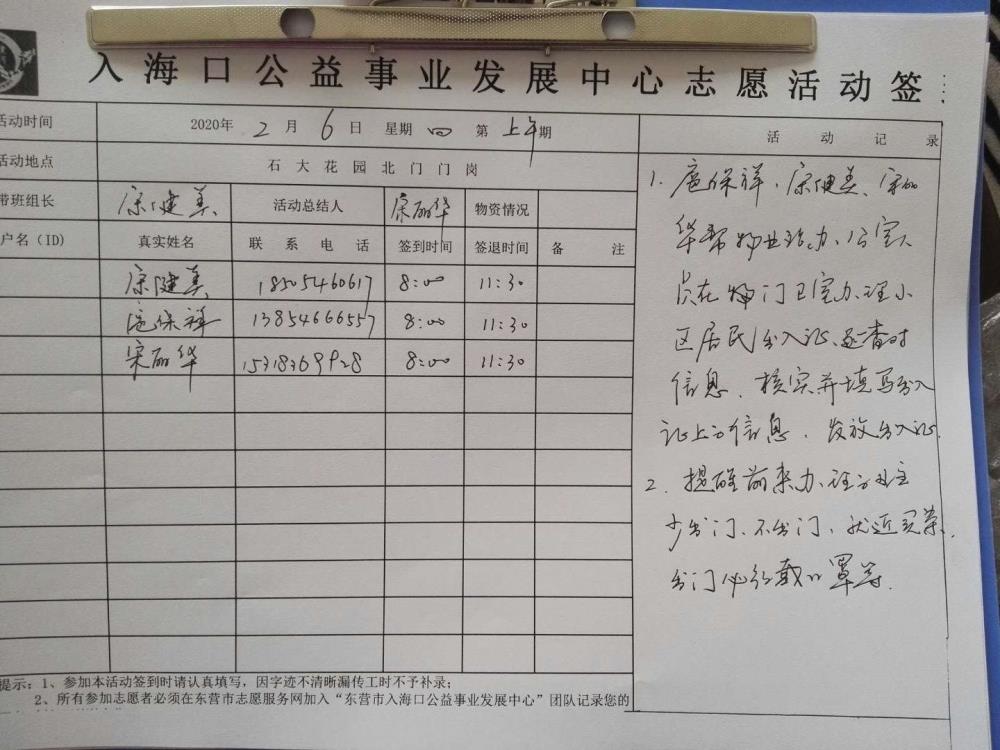 入海口公益事业发展中心志愿活动签
活动时间 2020年 2 月 6 日 星期 四 第 上午 期
活动地点 石大花园北门门岗
带班组长 宗健美 活动总结人 宋丽华 物资情况
户名(ID) 真实姓名 联系电话 签到时间 签退时间 备注
宗健美 18505460617 8:00 11:30
扈保祥 13854666557 8:00 11:30
宋丽华 15318369928 8:00 11:30
提示:1、参加本活动签到时请认真填写,因字迹不清晰漏传工时不予补录;
2、所有参加志愿者必须在东营市志愿服务网加入“东营市入海口公益事业发展中心”团队记录您的
活动记录
1. 扈保祥、宗健美、宋丽
华帮物业 办公室人
员在 门卫室办理小
区居民出入证、 查对
信息、核实并填写出入
证上的信息、发放出入证.
2. 提醒前来办理的业主
少出门、不出门、就近买菜.
出门必须戴口罩等.